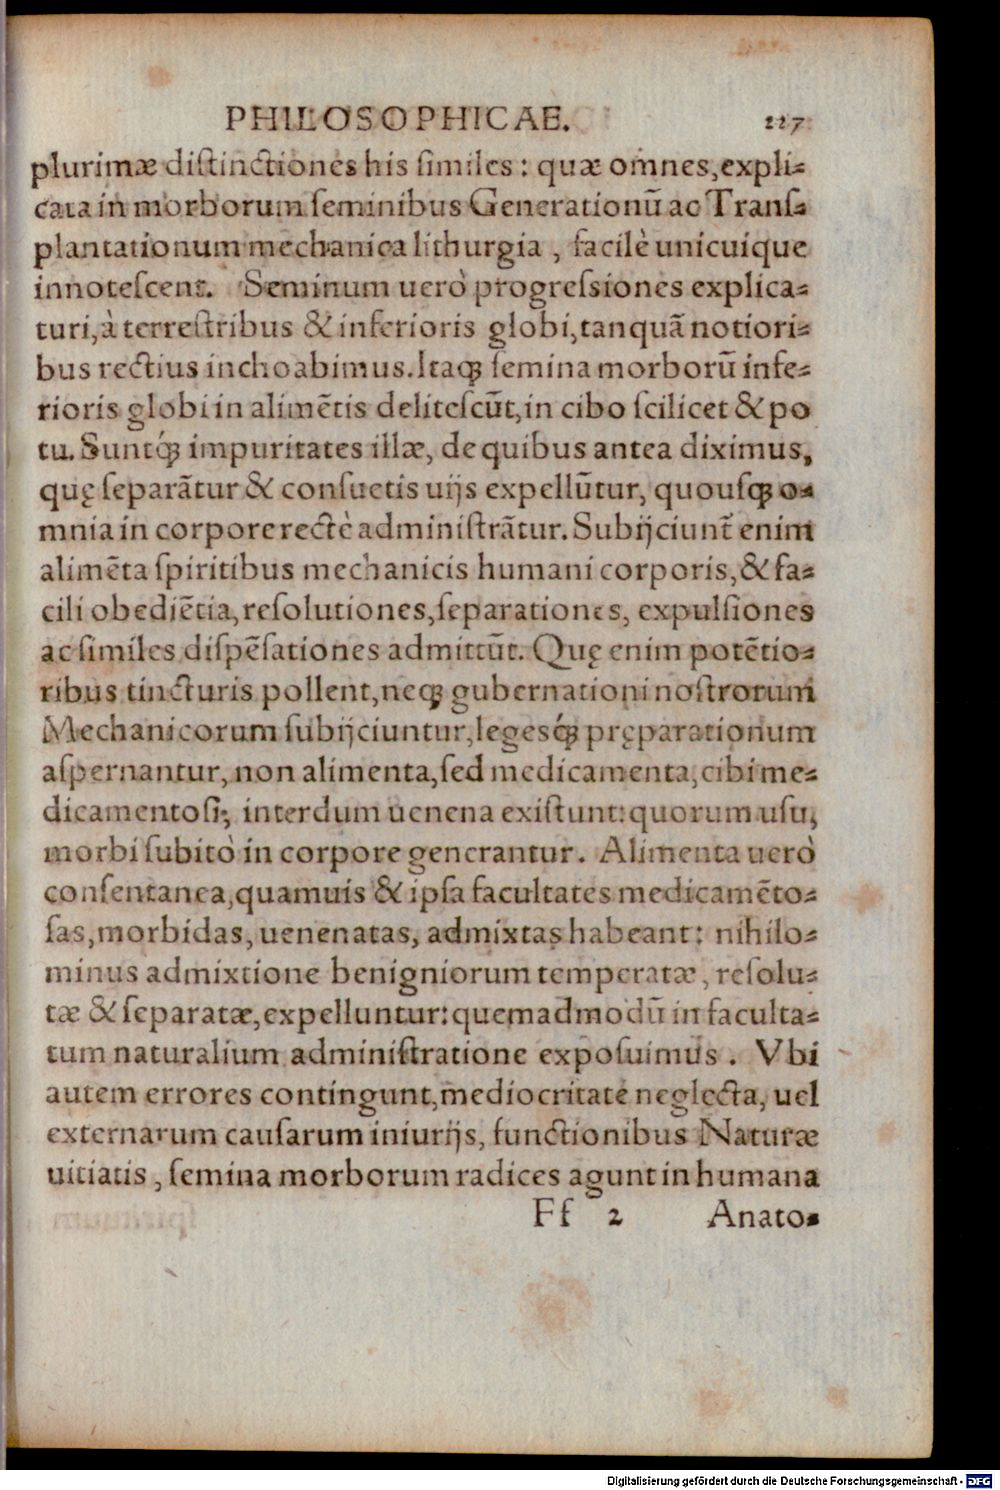 PHILOSOPHICAE. 227
plurimæ distinctiones his similes: quæ omnes, expli-
cata in morborum seminibus Generationũ ac Trans-
plantationum mechanica lithurgia, facilè unicuique
innotescent. Seminum uerò progressiones explica-
turi, à terrestribus & inferioris globi, tanquã notiori-
bus rectius inchoabimus. Itaq; semina morborũ infe-
rioris globi in alimẽtis delitescũt, in cibo scilicet & po
tu. Suntq́; impuritates illæ, de quibus antea diximus,
quę separãtur & consuetis uijs expellũtur, quousq; o-
mnia in corpore rectè administrãtur. Subijciunt̃ enim
alimẽta spiritibus mechanicis humani corporis, & fa-
cili obediẽtia, resolutiones, separationes, expulsiones
ac similes dispẽsationes admittũt. Quę enim potẽtio-
ribus tincturis pollent, neq; gubernationi nostrorum
Mechanicorum subijciuntur, legesq́; pręparationum
aspernantur, non alimenta, sed medicamenta, cibi me-
dicamentosi, interdum uenena existunt: quorum usu,
morbi subitò in corpore generantur. Alimenta uerò
consentanea, quamuis & ipsa facultates medicamẽto-
sas, morbidas, uenenatas, admixtas habeant: nihilo-
minus admixtione benigniorum temperatæ, resolu-
tæ & separatæ, expelluntur: quemadmodũ in faculta-
tum naturalium administratione exposuimus. Vbi
autem errores contingunt, mediocritate neglecta, uel
externarum causarum iniurijs, functionibus Naturæ
uitiatis, semina morborum radices agunt in humana
Ff 2 Anato-
Digitalisierung gefördert durch die Deutsche Forschungsgemeinschaft - DFG